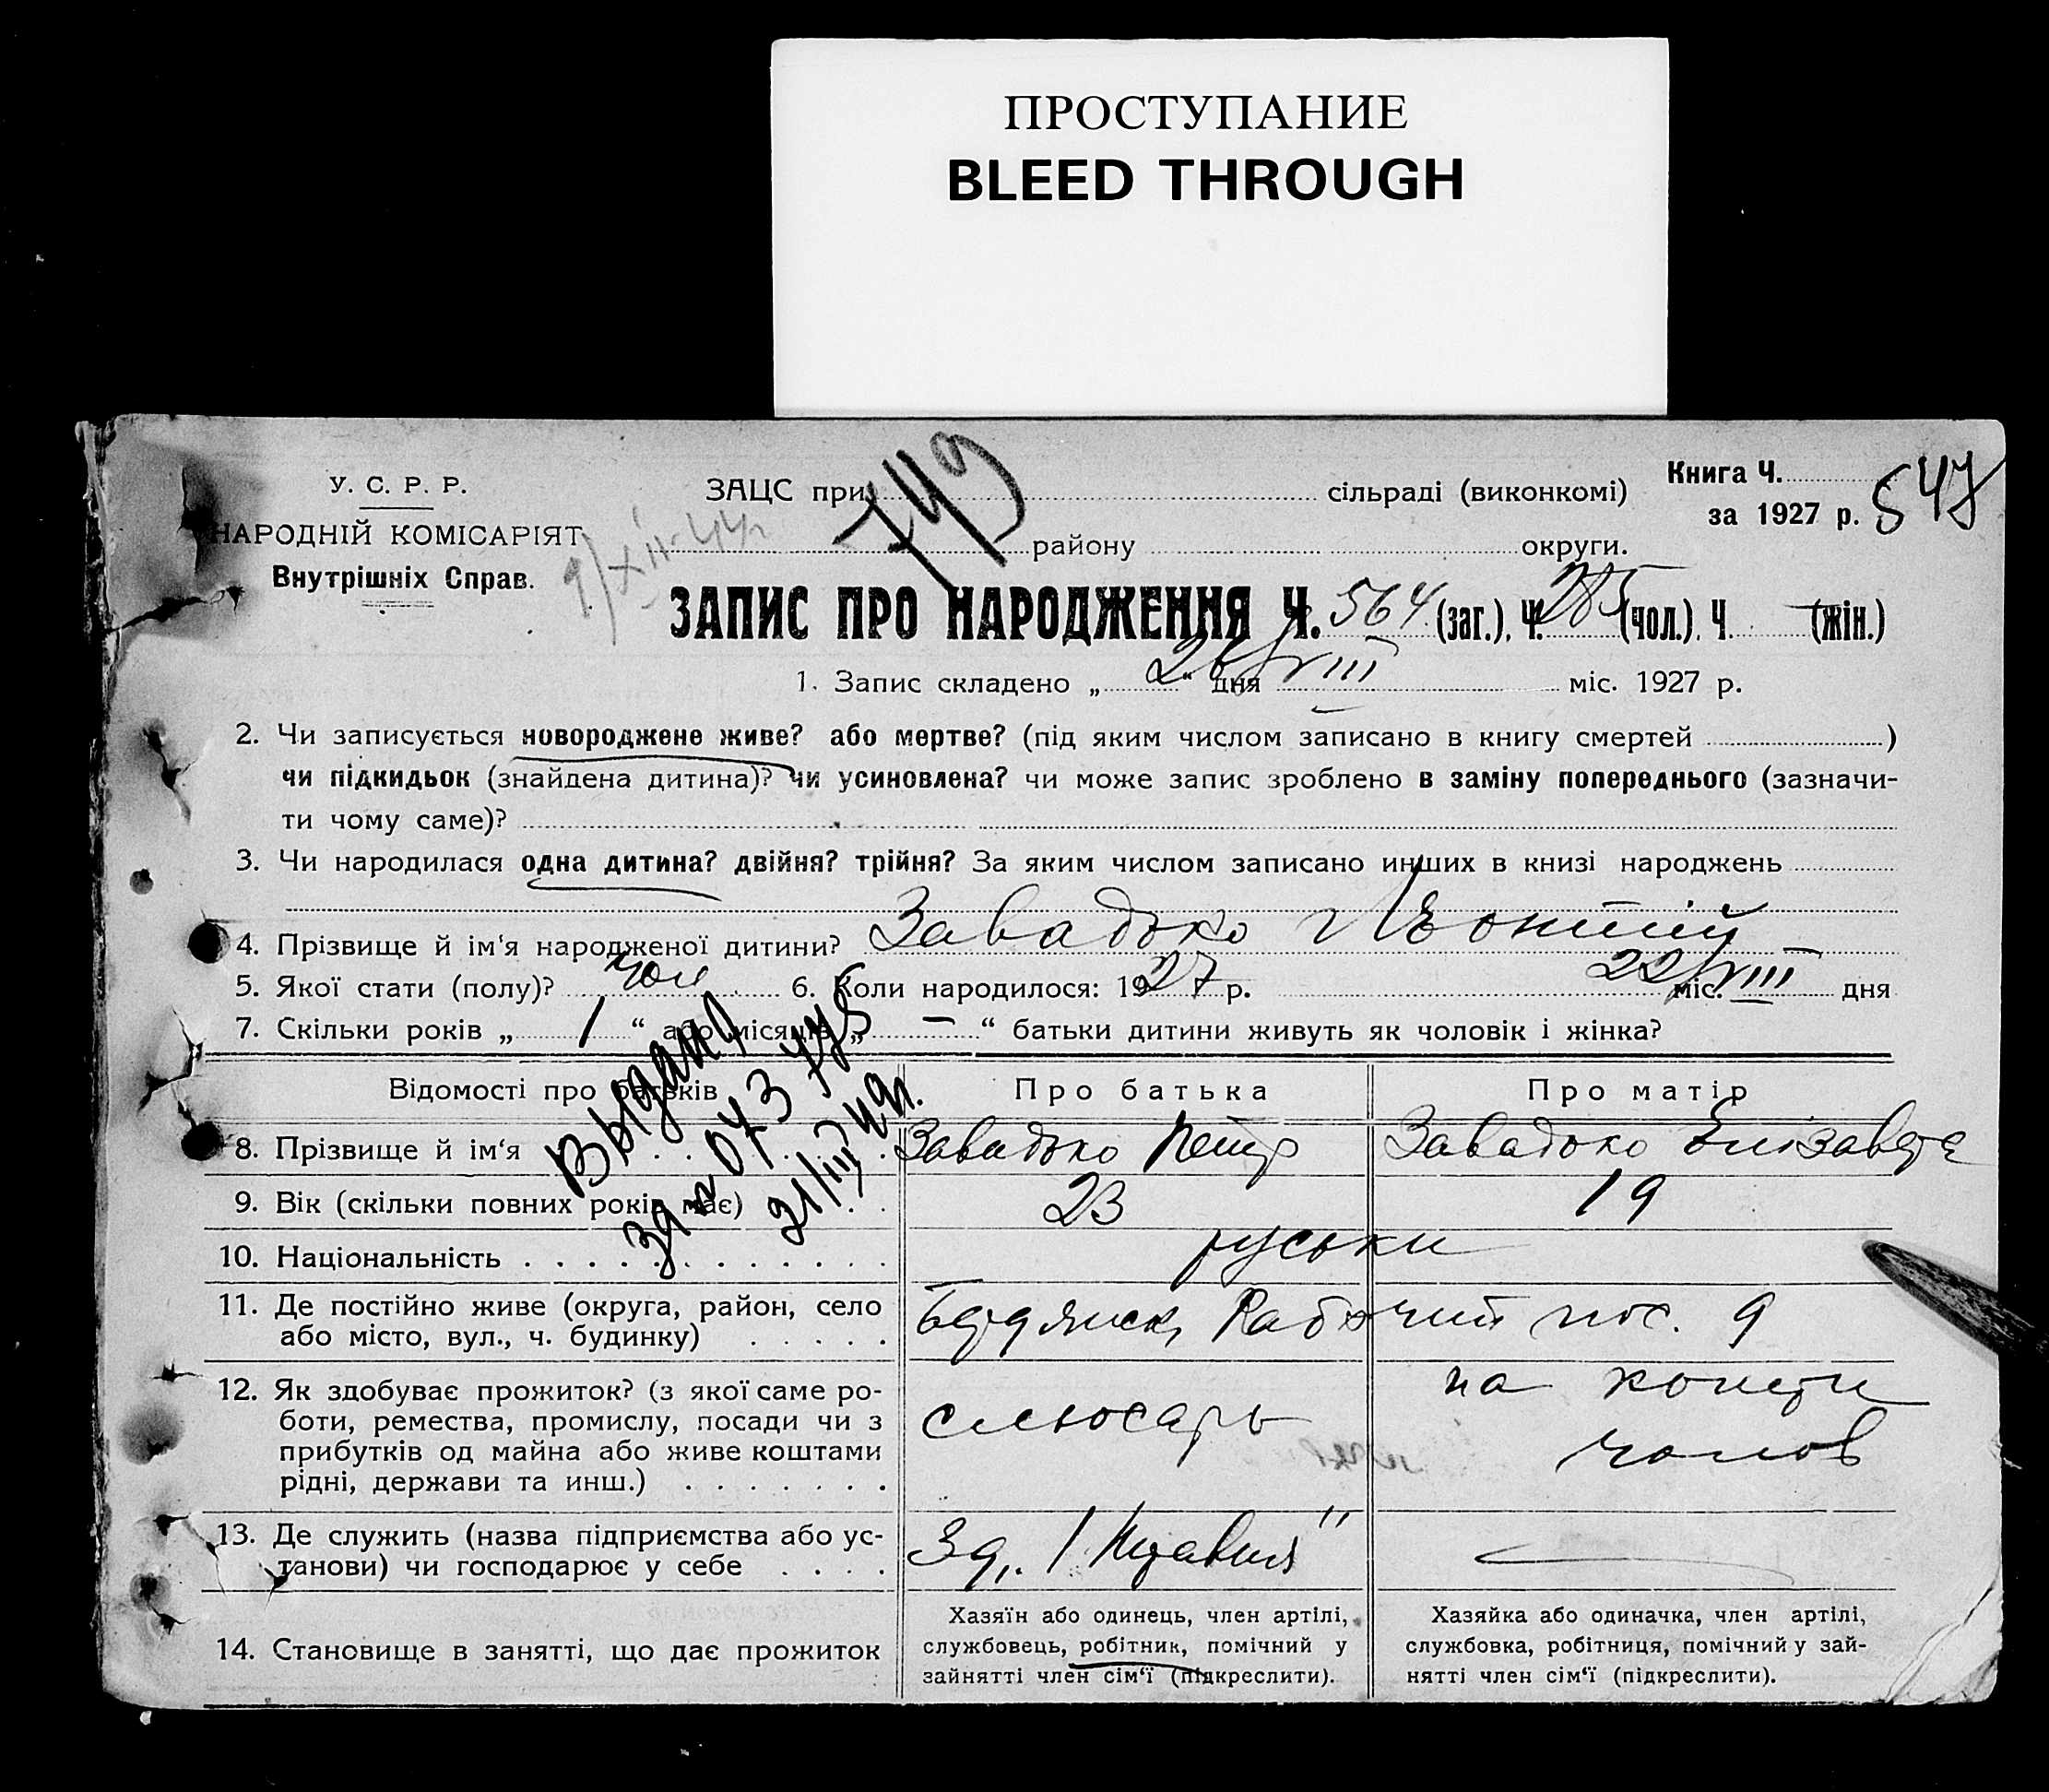 ПРОСТУПАНИЕ
BLEED THROUGH
У. С. Р. Р.
НАРОДНІЙ КОМІСАРІЯТ
Внутрішніх Справ.
9/XII-44г
749
ЗАЦС при сільраді (виконкомі)
району округи.
Книга Ч.
за 1927 р. 547
ЗАПИС ПРО НАРОДЖЕННЯ Ч. 564 (заг.), Ч. 285 (чол.), Ч. — (жін.)
1. Запис складено „ 26 “ дня VIII міс. 1927 р.
2. Чи записується новороджене живе? або мертве? (під яким числом записано в книгу смертей )
чи підкидьок (знайдена дитина)? чи усиновлена? чи може запис зроблено в заміну попереднього (зазначи-
ти чому саме)?
3. Чи народилася одна дитина? двійня? трійня? За яким числом записано инших в книзі народжень
4. Прізвище й ім‘я народженої дитини? Завадько Леонтій
5. Якої стати (полу)? чол. 6. Коли народилося: 1927 р. 22/VIII міс. дня
7. Скільки років „ 1 “ або місяців „ — “ батьки дитини живуть як чоловік і жінка?
Выдано
073 775
Відомості про батьків Про батька Про матір
8. Прізвище й ім‘я Завадько Петр Завадько Елізавета
9. Вік (скільки повних років має) 23 19
10. Національність руськи
11. Де постійно живе (округа, район, село
або місто, вул., ч. будинку) Бердянськ, Рабочий пос. 9
12. Як здобуває прожиток? (з якої саме ро-
боти, ремества, промислу, посади чи з
прибутків од майна або живе коштами
рідні, держави та инш.)
слюсарь
на кошти
чолов
13. Де служить (назва підприємства або ус-
танови) чи господарює у себе —
14. Становище в занятті, що дає прожиток
Хазяїн або одинець, член артілі,
службовець, робітник, помічний у
зайнятті член сім‘ї (підкреслити).
Хазяйка або одиначка, член артілі,
службовка, робітниця, помічний у зай-
нятті член сім‘ї (підкреслити).